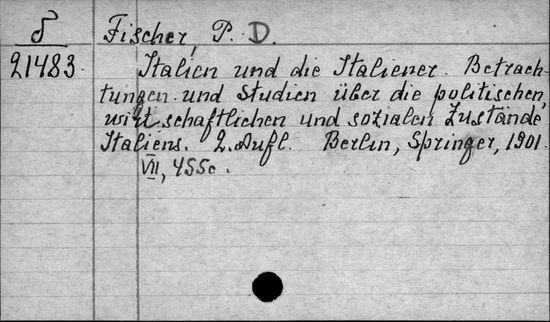 δ Fischer, P. D.
21483. Italien und die Italiener. Betrach-
tungen und Studien über die politischen,
wirtschaftlichen und sozialen Zustände
Italiens. 2. Aufl. Berlin, Springer, 1901.
VII, 455 c.